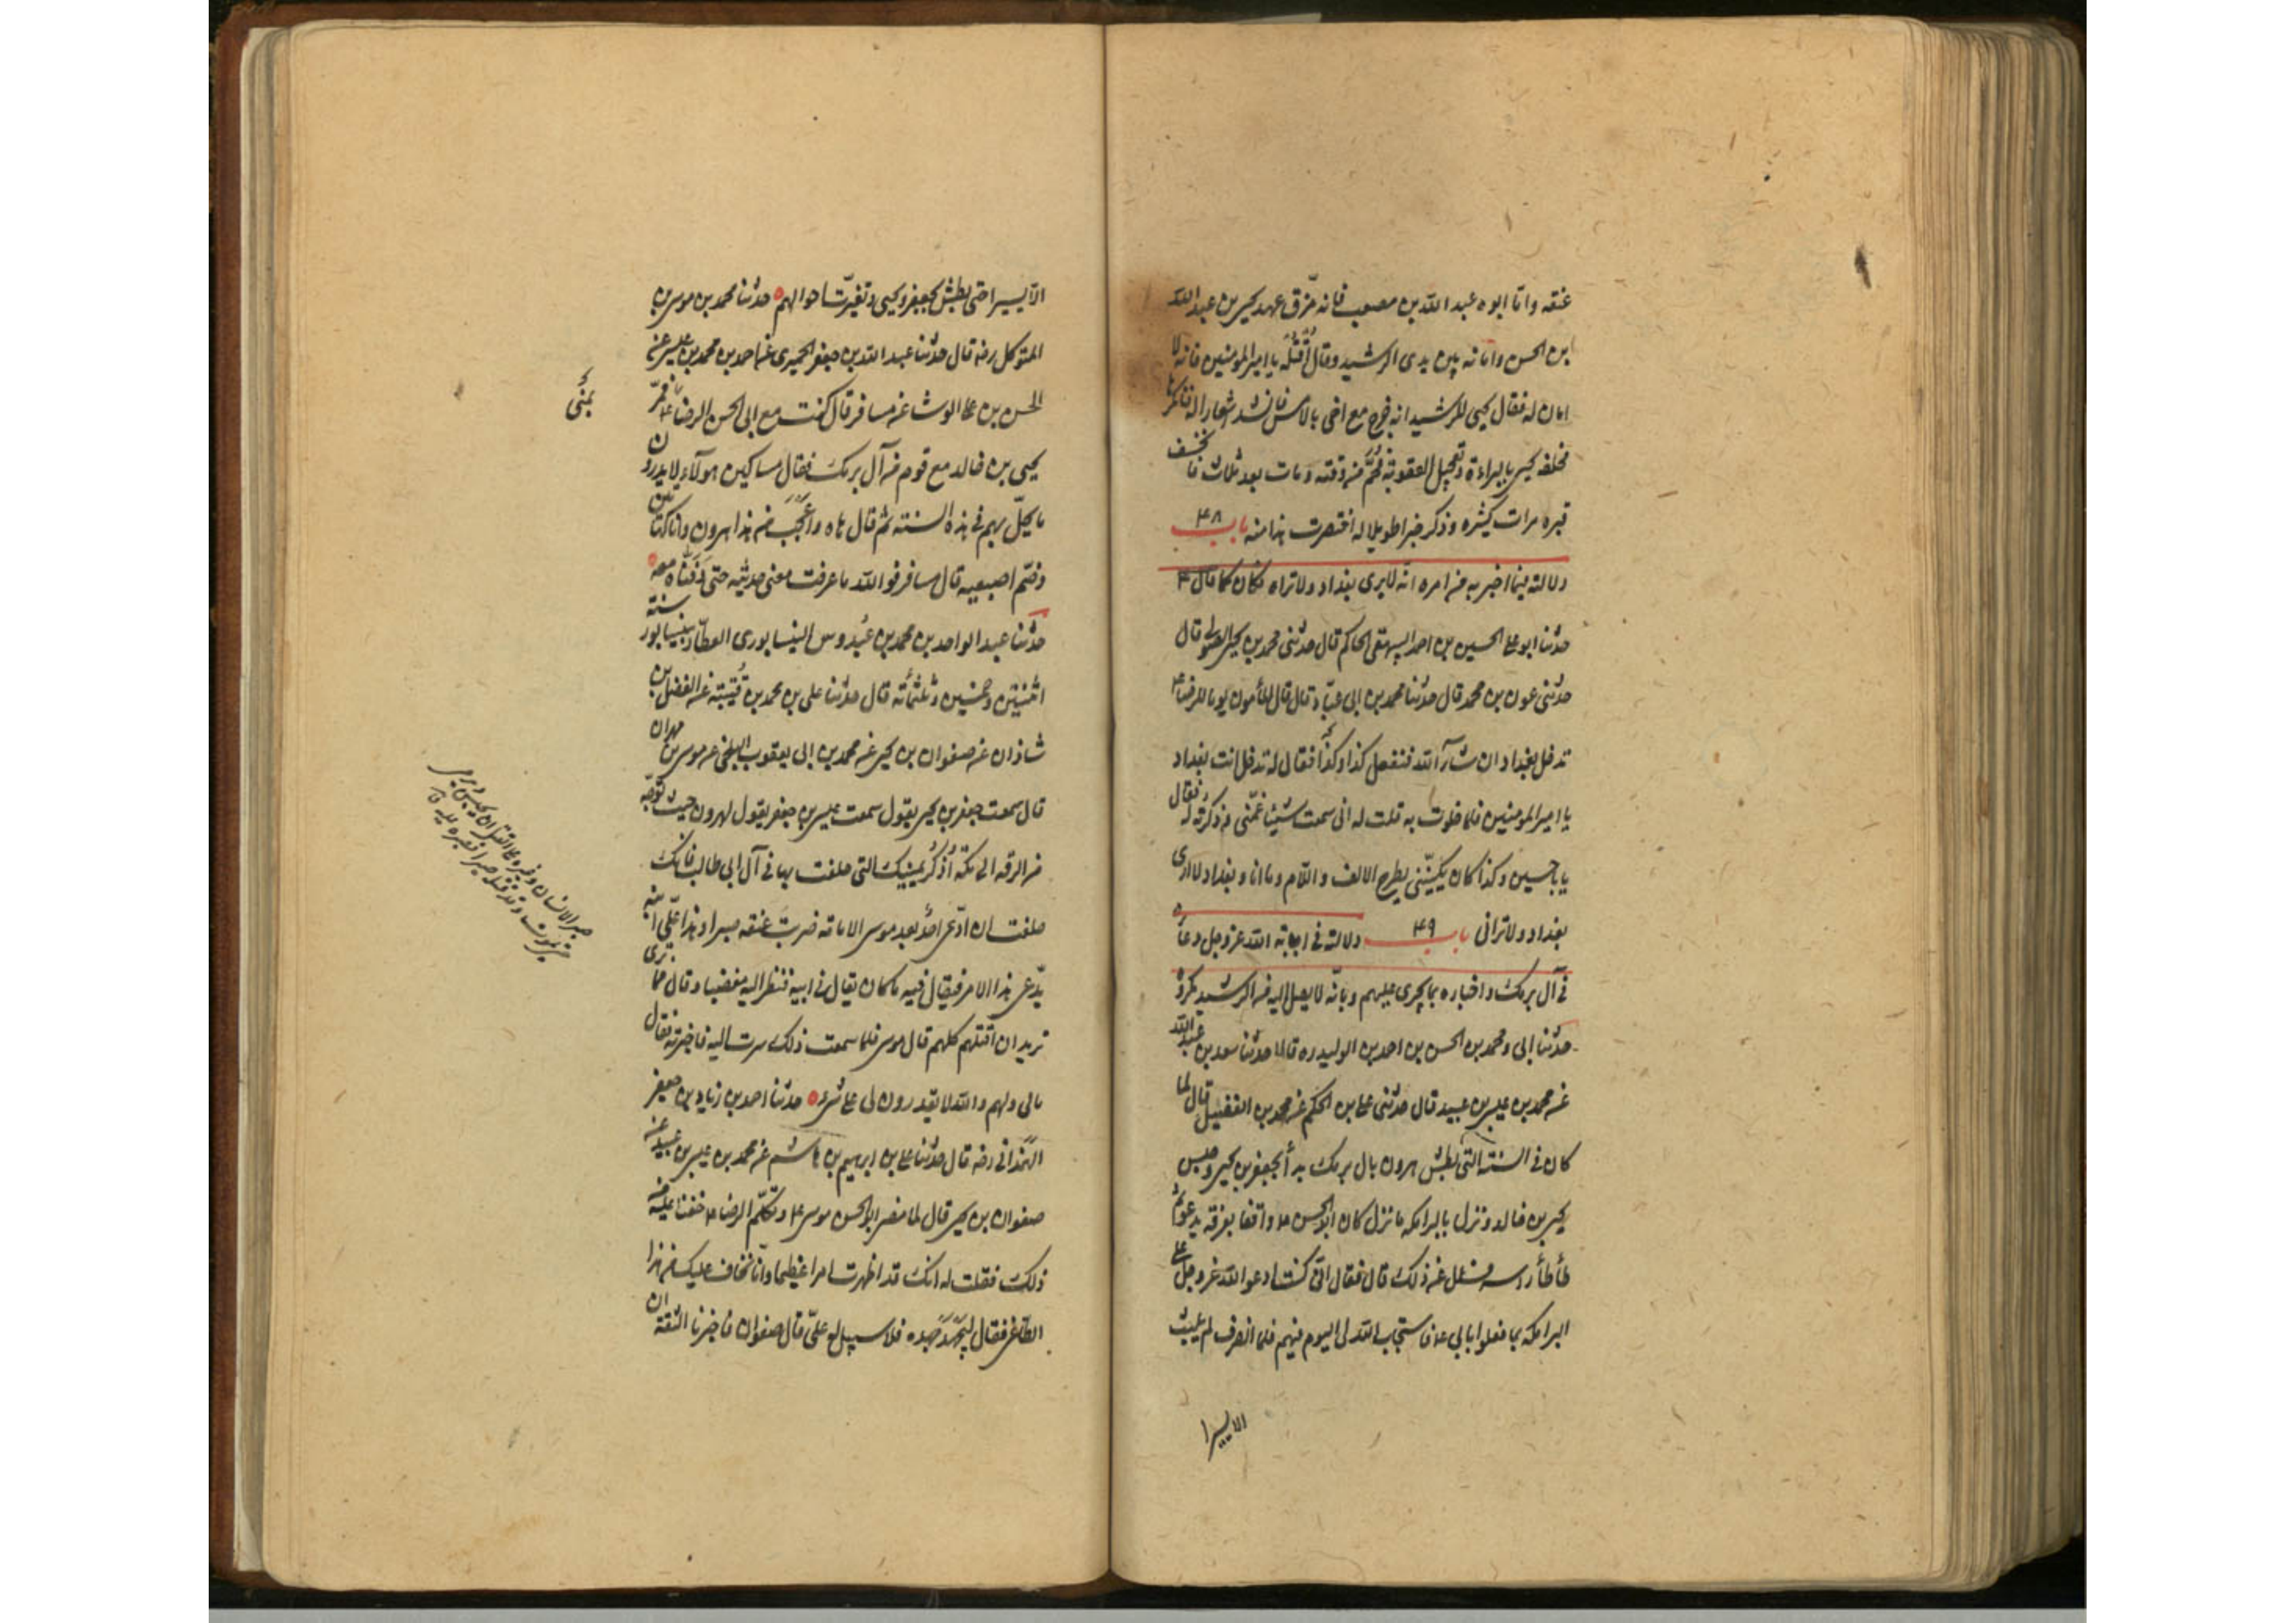 عنقه واما ابوه عبد الله بن مصعب فانه مزق عهد يحيى بن عبد الله
ابن الحسن وامانه بين يدى الرشيد وقال اُقْتُلْه يا امير المؤمنين فانه لا
امان له فقال يحيى للرشيد انه خرج مع اخى بالامس فانشد شعارا له فانكرها
فحلفه يحيى بالبراءة وتعجيل العقوبة فحُمّ من وقته ومات بعد ثلاث فانخسف
قبره مرات كثيرة وذكر خبرا طويلا له اختصرت هذا منه باب ۴۸
دلالته فيما اخبر به من امره انه لا يرى بغداد ولا تراه فكان كما قال ۴
حدثنا ابو على الحسين بن احمد البيهقى الحاكم قال حدثنى محمد بن يحيى الصولى قال
حدثنى عون بن محمد قال حدثنا محمد بن ابى عبّاد قال قال المأمون يوما للرضا ۴
تدخل بغداد ان شآء الله فنفعل كذا وكذا فقال له تدخل انت بغداد
يا امير المؤمنين فلما خلوت به قلت له انى سمعت شيئا غمّنى فذكرته له فقال
يا با حسين وكذا كان يكنّينى يطرح الالف واللام وما انا وبغداد لا ارى
بغداد ولا ترانى باب ۴۹ دلالته فى اجابة الله عز وجل دعاءه
فى آل برمك واخباره بما يجرى عليهم وبانه لا يصل اليه من الرشيد مكروه
حدثنا ابى ومحمد بن الحسن بن احمد بن الوليد ره قالا حدثنا سعد بن عبد الله
عن محمد بن عيسى بن عبيد قال حدثنى على بن الحكم عن محمد بن الفضيل قال لما
كان فى السنة التى بطش هرون بال برمك بدأ بجعفر بن يحيى وحبس
يحيى بن خالد ونزل بالبرامكة ما نزل كان ابو الحسن ۴ واقفا بعرفة يدعو ثم
طأطأ راسه فسئل عن ذلك قال فقال انى كنت ادعو الله عز وجل على
البرامكة بما فعلوا بابى ۴ فاستجاب الله لى اليوم فيهم فلما انصرف لم يلبث
الا يسيرا
الا يسيرا حتى بطش بجعفر ويحيى وتغيّرت احوالهم حدثنا محمد بن موسى بن
المتوكل رضه قال حدثنا عبد الله بن جعفر الحميرى عن احمد بن محمد بن عيسى عن
الحسن بن على الوشا عن مسافر قال كنت مع ابى الحسن الرضا ۴ فمرّ
بمنًى
يحيى بن خالد مع قوم من آل برمك فقال مساكين هولآء لا يدرون
ما يحلّ بهم فى هذه السنة ثم قال هاه واعجبَ من هذا هرون وانا كهاتين
وضم اصبعيه قال مسافر فو الله ما عرفت معنى حديثه حتى دفنّاه معه
حدثنا عبد الواحد بن محمد بن عُبدوس النيسابورى العطّار بنيسابور سنة
اثنتين وخمسين وثلثمائة قال حدثنا على بن محمد بن قُتيبة عن الفضل بن
شاذان عن صفوان بن يحيى عن محمد بن ابى يعقوب البلخى عن موسى بن مهران
قال سمعت جعفر بن يحيى يقول سمعت عيسى بن جعفر يقول لهرون حيث توجّه
من الرقة الى مكة اُذْكُرْ يمينك التى حلفت بها فى آل ابى طالب فانك
حلفت ان ادّعى احدٌ بعد موسى الامامة ضربت عنقه صبرا وهذا علىّ ابنه
يدّعى هذا الامر فيقال فيه ما كان يقال فى ابيه فنظر اليه مغضبا وقال فما ترى
تريد ان اقتلهم كلهم قال موسى فلما سمعت ذلك سرت اليه فاخبرته فقال
مالى ولهم والله لا يقدرون لى على شىء حدثنا احمد بن زياد بن جعفر
الهمدانى رضه قال حدثنا على بن ابرهيم بن هاشم عن محمد بن عيسى بن عبيد عن
صفوان بن يحيى قال لما مضى ابو الحسن موسى ۴ وتكلّم الرضا ۴ خفنا عليه من
ذلك فقلت له انك قد اظهرت امرا عظيما وانّا نخاف عليك من هذا
الطاغى فقال ليَجْهَدْ جهده فلا سبيل له علىّ قال صفوان فاخبرنا الثقة ان